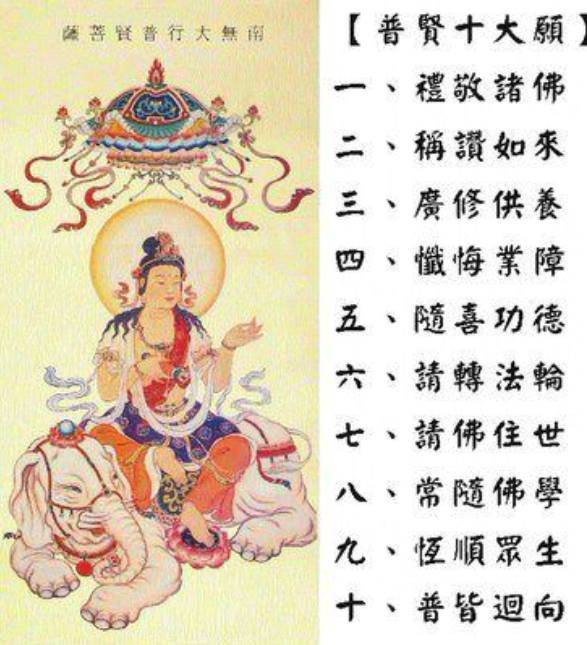 南無大行普賢菩薩
【普賢十大願】
一、禮敬諸佛
二、稱讚如來
三、廣修供養
四、懺悔業障
五、隨喜功德
六、請轉法輪
七、請佛住世
八、常隨佛學
九、恆順眾生
十、普皆迴向